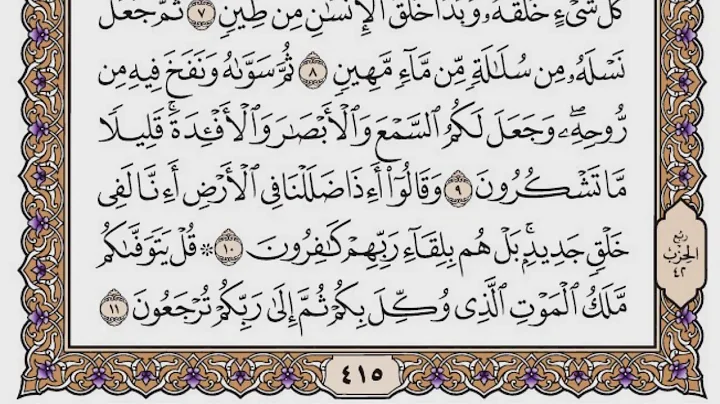 كُلَّ شَىْءٍ خَلَقَهُۥ وَبَدَأَ خَلْقَ الْإِنسَـٰنِ مِن طِينٍ ٧ ثُمَّ جَعَلَ
نَسْلَهُۥ مِن سُلَـٰلَةٍ مِّن مَّآءٍ مَّهِينٍ ٨ ثُمَّ سَوَّىٰهُ وَنَفَخَ فِيهِ مِن
رُّوحِهِۦۖ وَجَعَلَ لَكُمُ السَّمْعَ وَالْأَبْصَـٰرَ وَالْأَفْـِٔدَةَۚ قَلِيلًا
مَّا تَشْكُرُونَ ٩ وَقَالُوٓا۟ أَءِذَا ضَلَلْنَا فِى الْأَرْضِ أَءِنَّا لَفِى
خَلْقٍ جَدِيدٍۭۚ بَلْ هُم بِلِقَآءِ رَبِّهِمْ كَـٰفِرُونَ ١٠ ۞ قُلْ يَتَوَفَّىٰكُم
مَّلَكُ الْمَوْتِ الَّذِى وُكِّلَ بِكُمْ ثُمَّ إِلَىٰ رَبِّكُمْ تُرْجَعُونَ ١١
ربع
الحزب
٤٢
٤١٥